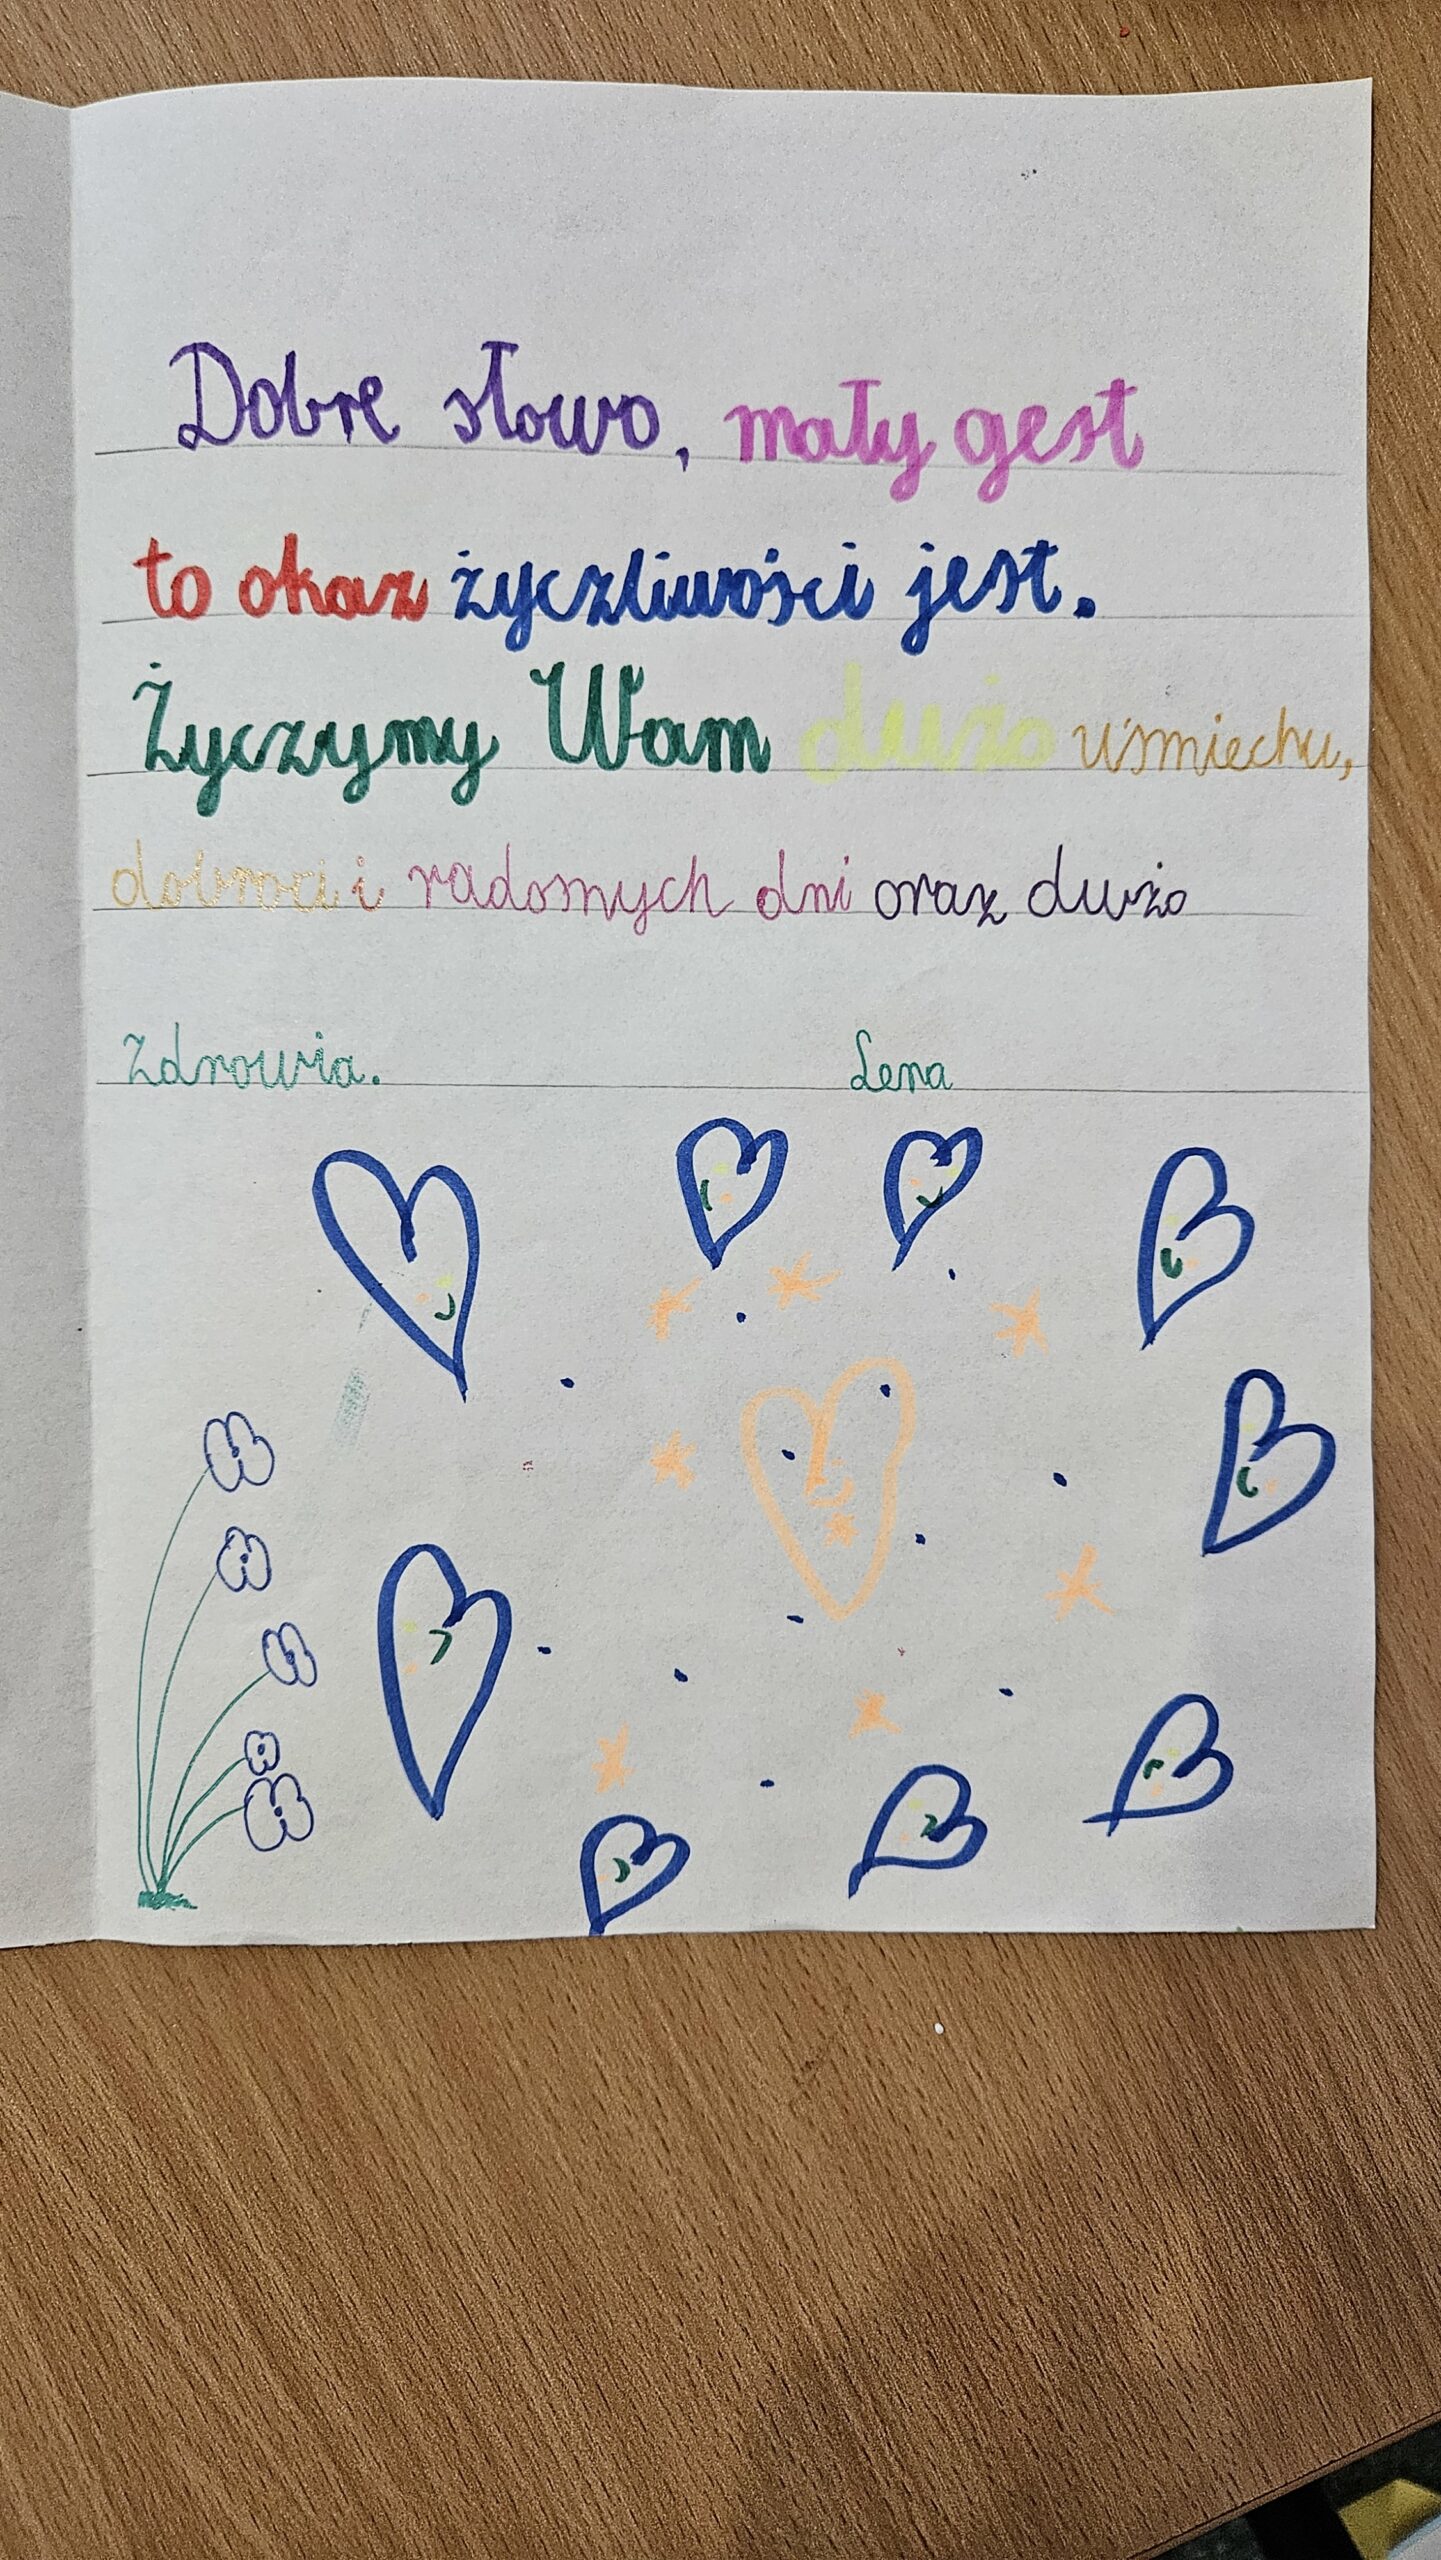 Dobre słowo, mały gest
to okaz życzliwości jest.
Życzymy Wam dużo uśmiechu,
dobroci i radosnych dni oraz dużo
Zdrowia. Lena